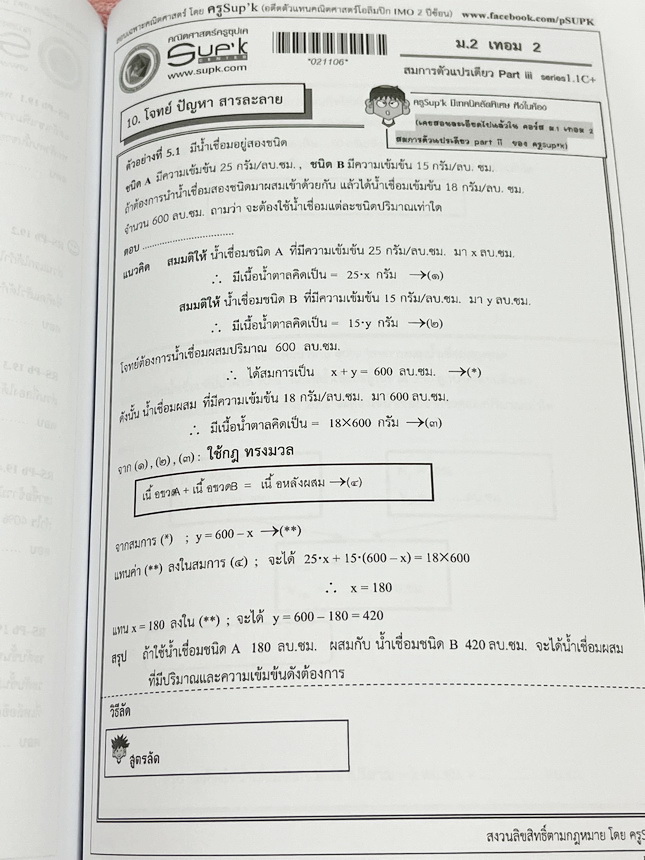 สอนเฉพาะคณิตศาสตร์ โดย ครูSup'k (อดีตตัวแทนคณิตศาสตร์โอลิมปิก IMO 2 ปีซ้อน) www.facebook.com/pSUPK
คณิตศาสตร์ครูซุปเค
Sup'k
www.supk.com
*021106*
ม.2 เทอม 2
สมการตัวแปรเดียว Part iii series1.1C+
10. โจทย์ ปัญหา สารละลาย
ครูSup'k มีเทคนิคคิดพิเศษ คิดในห้อง
(เคยสอนละเอียดไปแล้วใน คอร์ส ม.1 เทอม 2
สมการตัวแปรเดียว part ii ของ ครูsup'k)
ตัวอย่างที่ 5.1 มีน้ำเชื่อมอยู่สองชนิด
ชนิด A มีความเข้มข้น 25 กรัม/ลบ.ซม. , ชนิด B มีความเข้มข้น 15 กรัม/ลบ. ซม.
ถ้าต้องการนำน้ำเชื่อมสองชนิดมาผสมเข้าด้วยกัน แล้วได้น้ำเชื่อมเข้มข้น 18 กรัม/ลบ. ซม.
จำนวน 600 ลบ.ซม. ถามว่า จะต้องใช้น้ำเชื่อมแต่ละชนิดปริมาณเท่าใด
ตอบ ..............................
แนวคิด สมมติให้ น้ำเชื่อมชนิด A ที่มีความเข้มข้น 25 กรัม/ลบ.ซม. มา x ลบ.ซม.
∴ มีเนื้อน้ำตาลคิดเป็น = 25·x กรัม →(๑)
สมมติให้ น้ำเชื่อมชนิด B ที่มีความเข้มข้น 15 กรัม/ลบ.ซม. มา y ลบ.ซม.
∴ มีเนื้อน้ำตาลคิดเป็น = 15·y กรัม →(๒)
โจทย์ต้องการน้ำเชื่อมผสมปริมาณ 600 ลบ.ซม.
∴ ได้สมการเป็น x + y = 600 ลบ.ซม. →(*)
ดังนั้น น้ำเชื่อมผสม ที่มีความเข้มข้น 18 กรัม/ลบ.ซม. มา 600 ลบ.ซม.
∴ มีเนื้อน้ำตาลคิดเป็น = 18×600 กรัม →(๓)
จาก (๑) , (๒) , (๓) : ใช้กฎ ทรงมวล
เนื้อขวดA + เนื้อขวดB = เนื้อหลังผสม →(๔)
จากสมการ (*) ; y = 600 – x →(**)
แทนค่า (**) ลงในสมการ (๔) ; จะได้ 25·x + 15·(600 – x) = 18×600
∴ x = 180
แทน x = 180 ลงใน (**) ; จะได้ y = 600 – 180 = 420
สรุป ถ้าใช้น้ำเชื่อมชนิด A 180 ลบ.ซม. ผสมกับ น้ำเชื่อมชนิด B 420 ลบ.ซม. จะได้น้ำเชื่อมผสม
ที่มีปริมาณและความเข้มข้นดังต้องการ
วิธีลัด
สูตรลัด
สงวนลิขสิทธิ์ตามกฎหมาย โดย ครูS